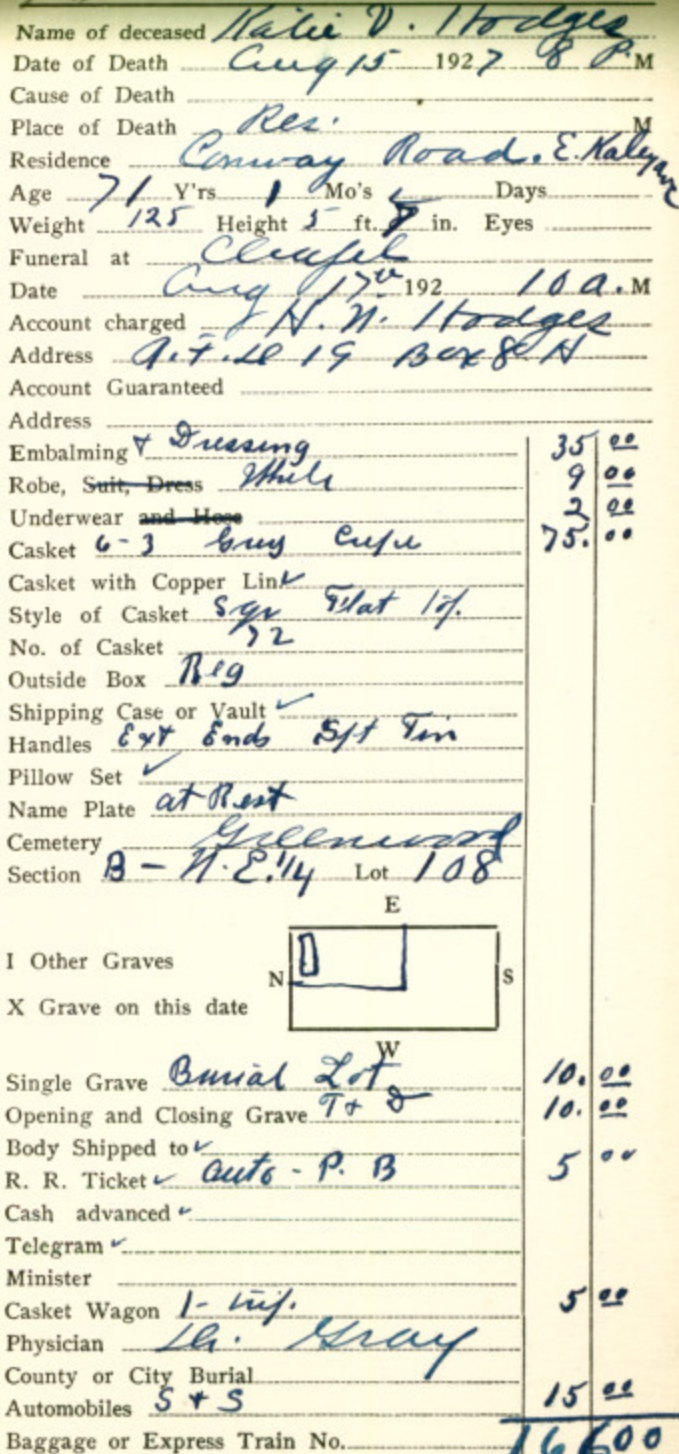 Name of deceased Katie V. Hodges
Date of Death Aug 15 1927 8 P. M
Cause of Death
Place of Death Res. M
Residence Conway Road. E.
Age 71 Y'rs 1 Mo's Days
Weight 125 Height 5 ft. 8 in. Eyes
Funeral at Chapel
Date Aug 17th 192 10 a. M
Account charged H. N. Hodges
Address 19 Box 8 H
Account Guaranteed
Address
Embalming + Dressing 35 00
Robe, Suit, Dress 9 00
Underwear and Hose 2 00
Casket 6-3 Grey Crepe 75. 00
Casket with Copper Lin ✓
Style of Casket Sqr Flat
No. of Casket 72
Outside Box Reg
Shipping Case or Vault ✓
Handles Ext Ends Tin
Pillow Set ✓
Name Plate at Rest
Cemetery Greenwood
Section B - N.E. 1/4 Lot 108
E
I Other Graves
N S
X Grave on this date
W
Single Grave Burial Lot 10. 00
Opening and Closing Grave T + D 10. 00
Body Shipped to ✓
R. R. Ticket ✓ Auto - P. B 5 00
Cash advanced ✓
Telegram ✓
Minister
Casket Wagon 1- 5 00
Physician Dr. Gray
County or City Burial
Automobiles S + S 15 00
Baggage or Express Train No. 166 00